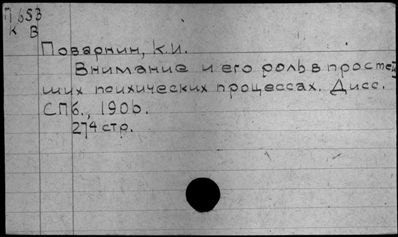 П 653
К В
Поварнин, К.И.
Внимание и его роль в простей
ших психических процессах. Дисс.
СПб., 1906.
274 стр.